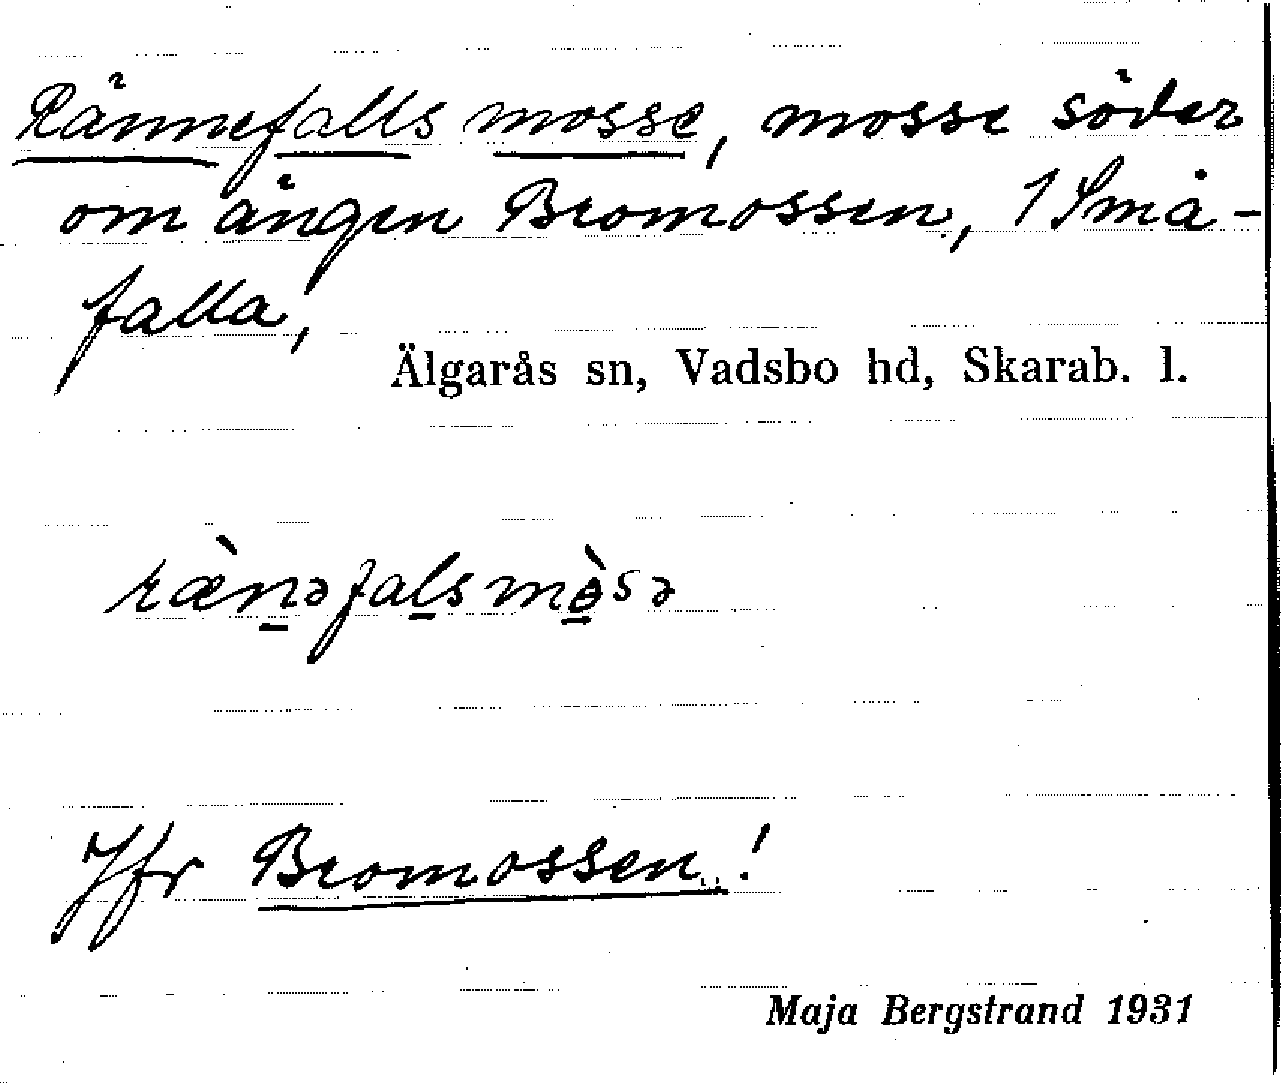 Rännefalls mosse, mosse söder
om ängen Bromossen, 1 Små-
falla,
Älgarås sn, Vadsbo hd, Skarab. l.
ræ̀n̲əfal̲smò̲sə
Jfr Bromossen!
Maja Bergstrand 1931